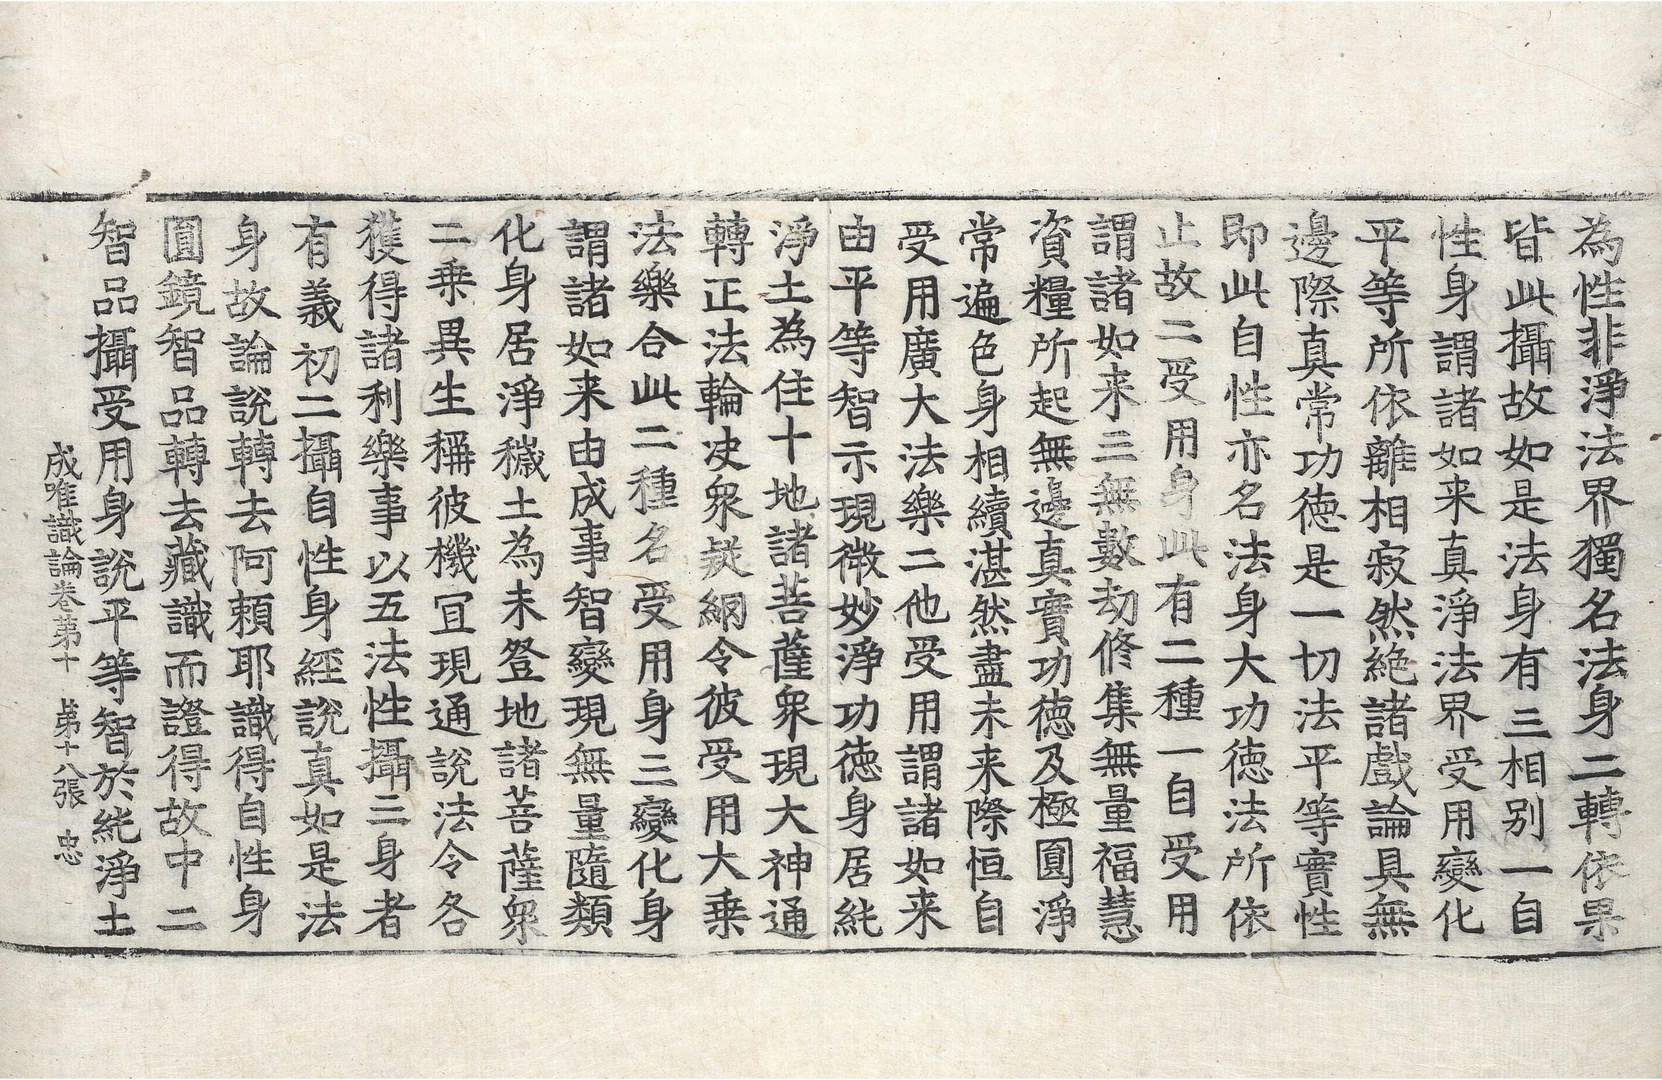 為性非淨法界獨名法身二轉依果
皆此攝故如是法身有三相别一自
性身謂諸如来真淨法界受用變化
平等所依離相寂然絶諸戲論具無
邊際真常功徳是一切法平等實性
即此自性亦名法身大功徳法所依
止故二受用身此有二種一自受用
謂諸如来三無數劫修集無量福慧
資糧所起無邊真實功徳及極圓淨
常遍色身相續湛然盡未来際恒自
受用廣大法樂二他受用謂諸如来
由平等智示現微妙淨功徳身居純
淨土為住十地諸菩薩衆現大神通
轉正法輪决衆疑網令彼受用大乗
法樂合此二種名受用身三變化身
謂諸如来由成事智變現無量隨類
化身居淨穢土為未登地諸菩薩衆
二乗異生稱彼機冝現通說法令各
獲得諸利樂事以五法性攝三身者
有義初二攝自性身經說真如是法
身故論說轉去阿頼耶識得自性身
圓鏡智品轉去藏識而證得故中二
智品攝受用身說平等智於純淨土
成唯識論卷第十　第十八張　忠